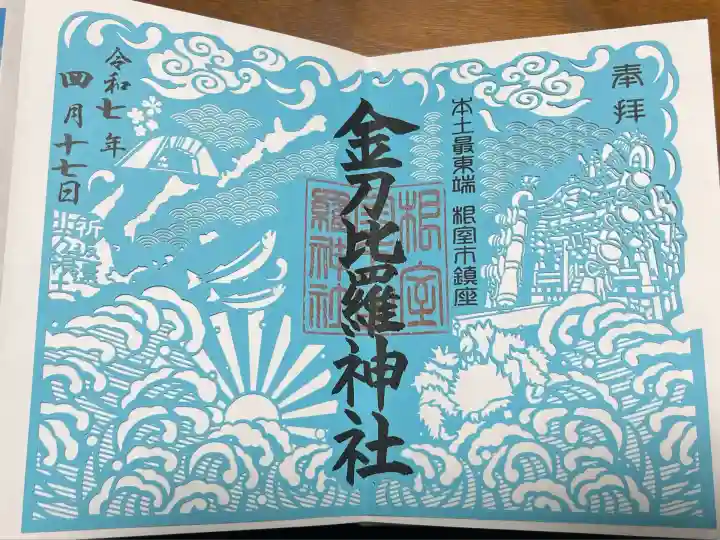 奉拝
本土最東端 根室市鎮座
金刀比羅神社
根室
金刀比
羅神社
令和七年
四月十七日
祈返還
北方領土